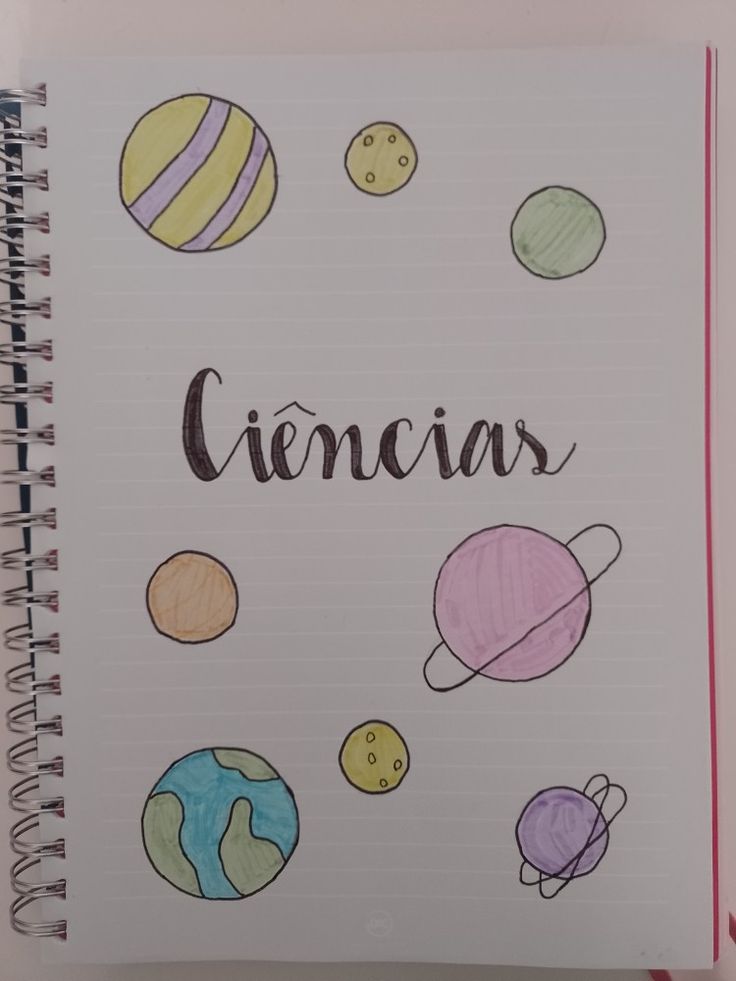 Ciências